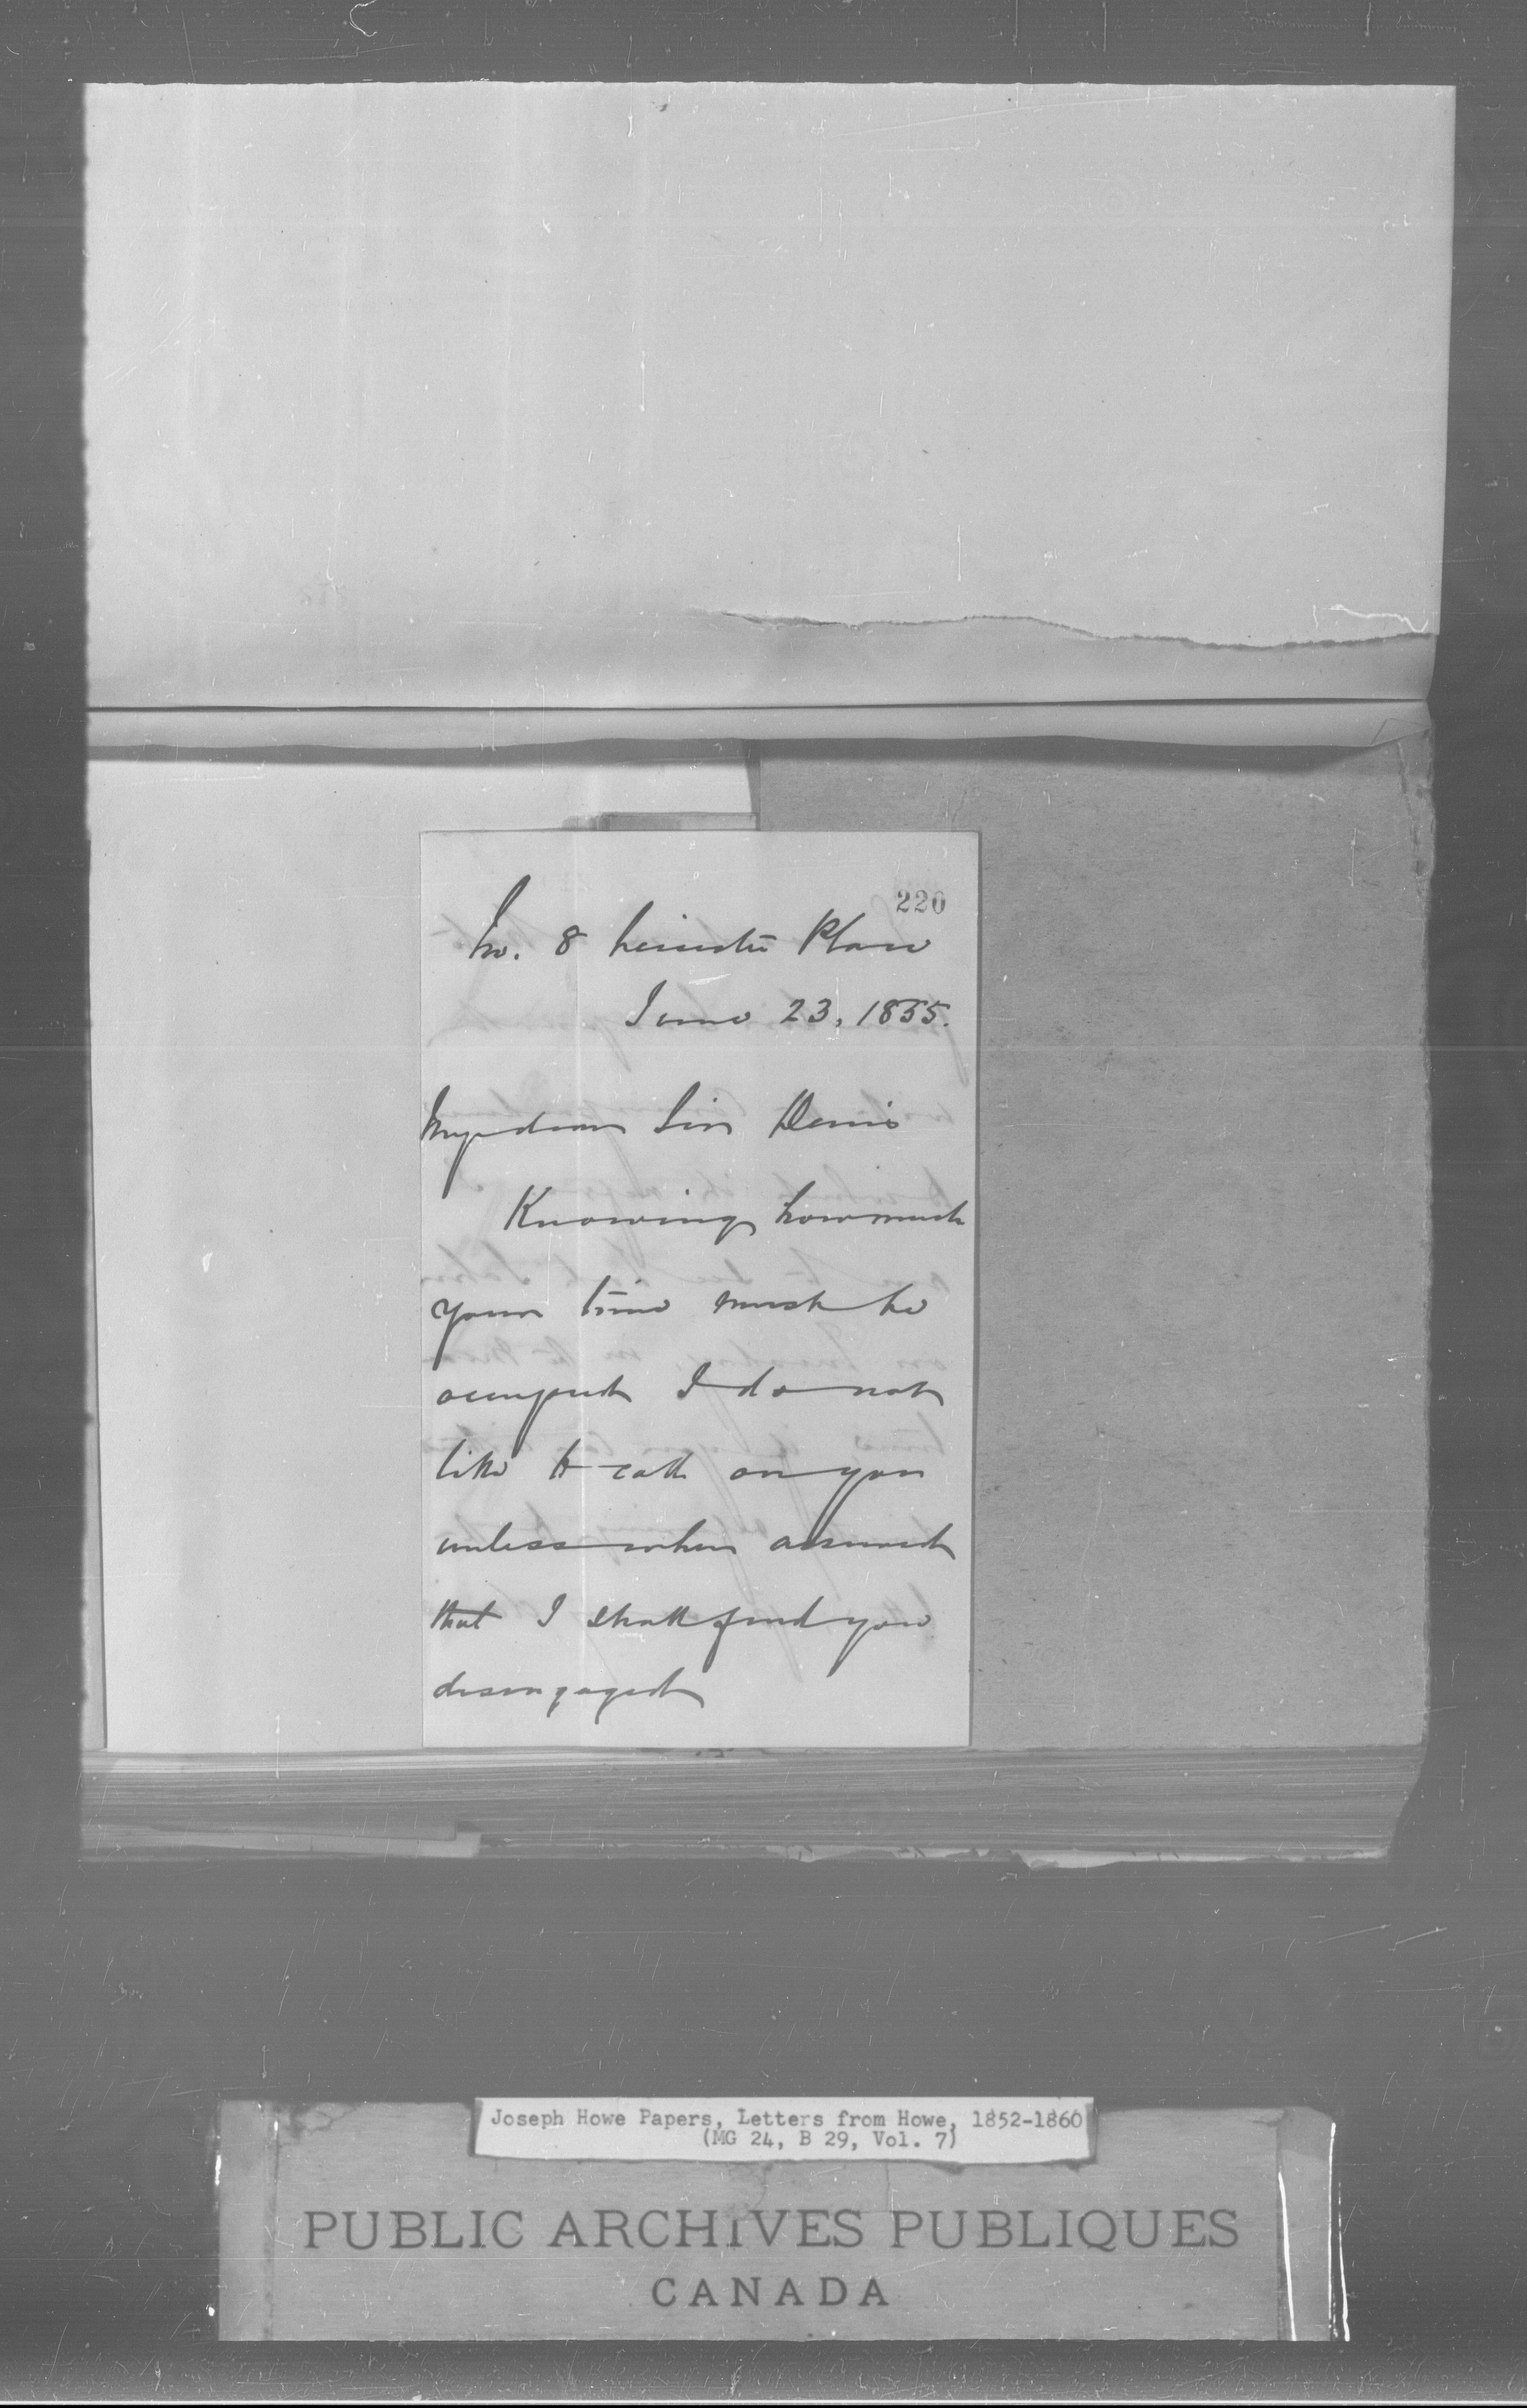 220
No. 8 Leinster Place
June 23, 1855.
My dear Sir Denis
Knowing how much
your time must be
occupied I do not
like to call on you
unless when assured
that I shall find you
disengaged
Joseph Howe Papers, Letters from Howe, 1852-1860
(MG 24, B 29, Vol. 7)
PUBLIC ARCHIVES PUBLIQUES
CANADA